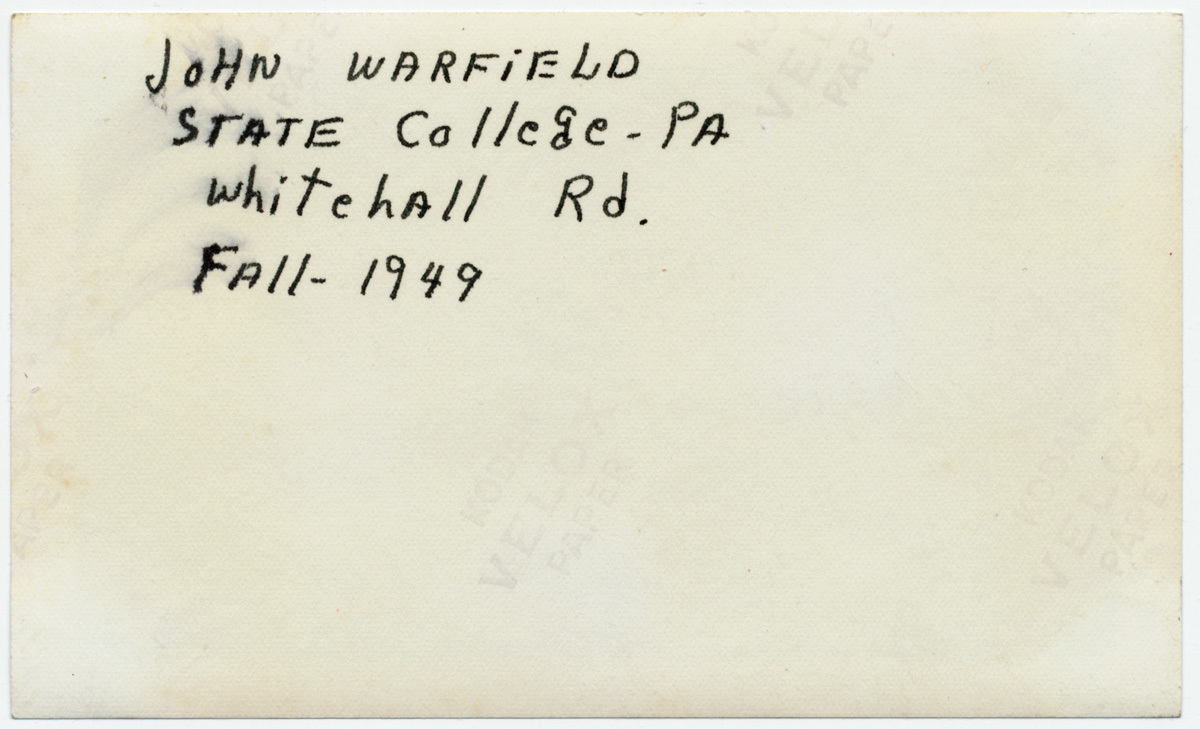 JOHN WARFiELD
STATE College - PA
WhiTehAll Rd.
FAll - 1949
KODAK
VELOX
PAPER
KODAK
VELOX
PAPER